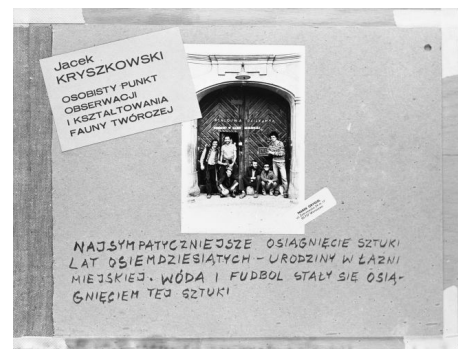 Jacek
KRYSZKOWSKI
OSOBISTY PUNKT
OBSERWACJI
I KSZTAŁTOWANIA
FAUNY TWÓRCZEJ
NAJSYMPATYCZNIEJSZE OSIĄGNIĘCIE SZTUKI
LAT OSIEMDZIESIĄTYCH – URODZINY W ŁAŹNI
MIEJSKIEJ. WÓDA I FUDBOL STAŁY SIĘ OSIĄ-
GNIĘCIEM TEJ SZTUKI